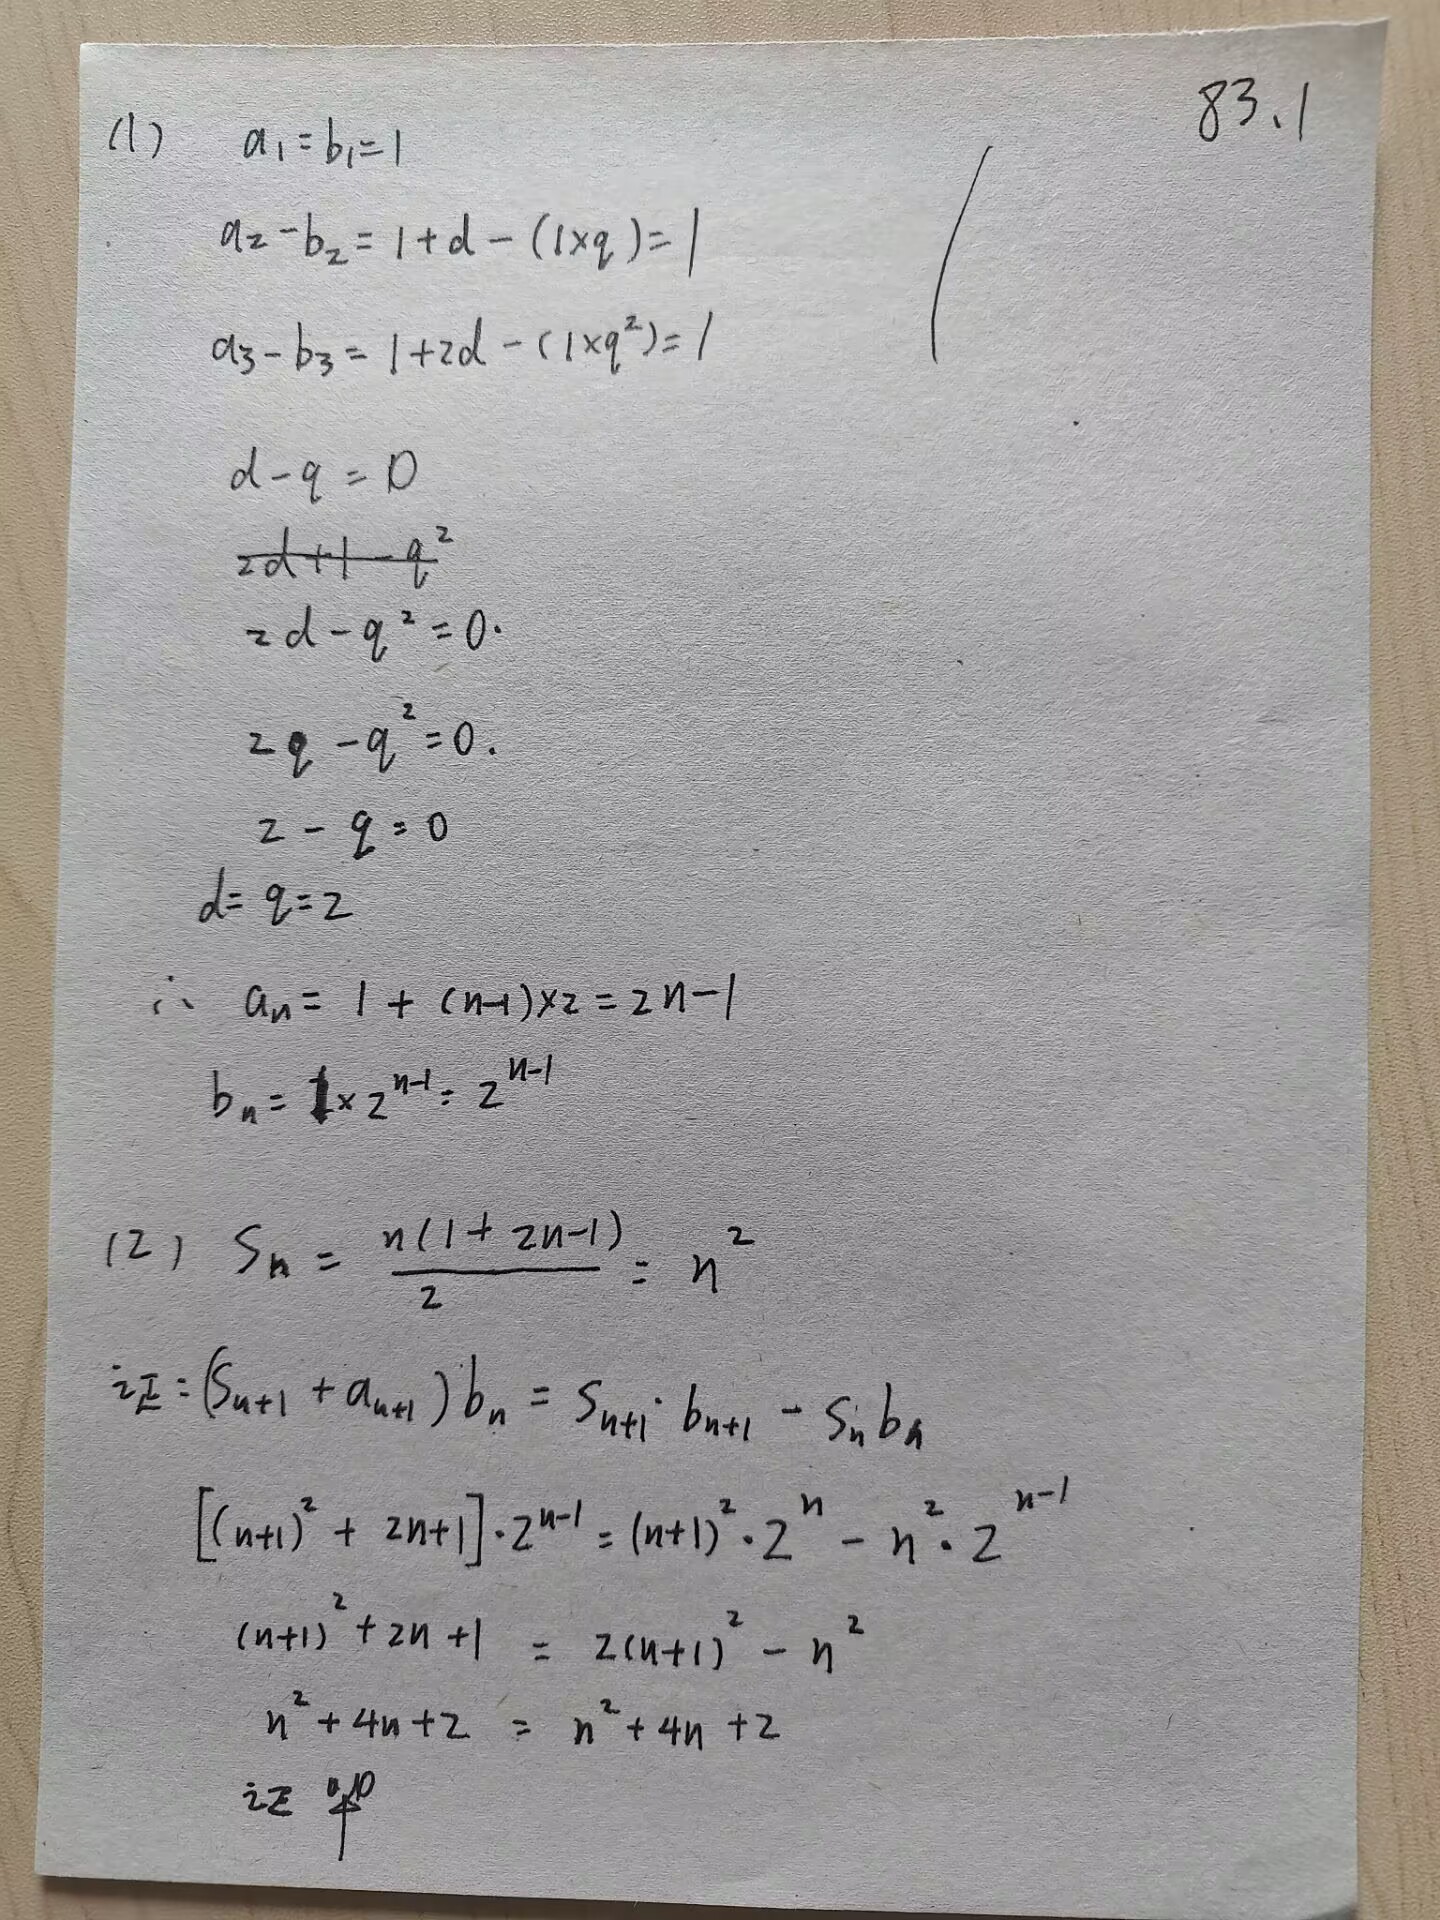 83.1
(1) a₁=b₁=1
a₂-b₂=1+d-(1×q)=1
a₃-b₃=1+2d-(1×q²)=1
d-q=0
2d+1-q²
2d-q²=0.
2q-q²=0.
2-q=0
d=q=2
∴ aₙ=1+(n-1)×2=2n-1
bₙ=1×2ⁿ⁻¹=2ⁿ⁻¹
(2) Sₙ=n(1+2n-1)/2=n²
证:(Sₙ₊₁+aₙ₊₁)bₙ=Sₙ₊₁·bₙ₊₁-Sₙbₙ
[(n+1)²+2n+1]·2ⁿ⁻¹=(n+1)²·2ⁿ-n²·2ⁿ⁻¹
(n+1)²+2n+1=2(n+1)²-n²
n²+4n+2=n²+4n+2
证